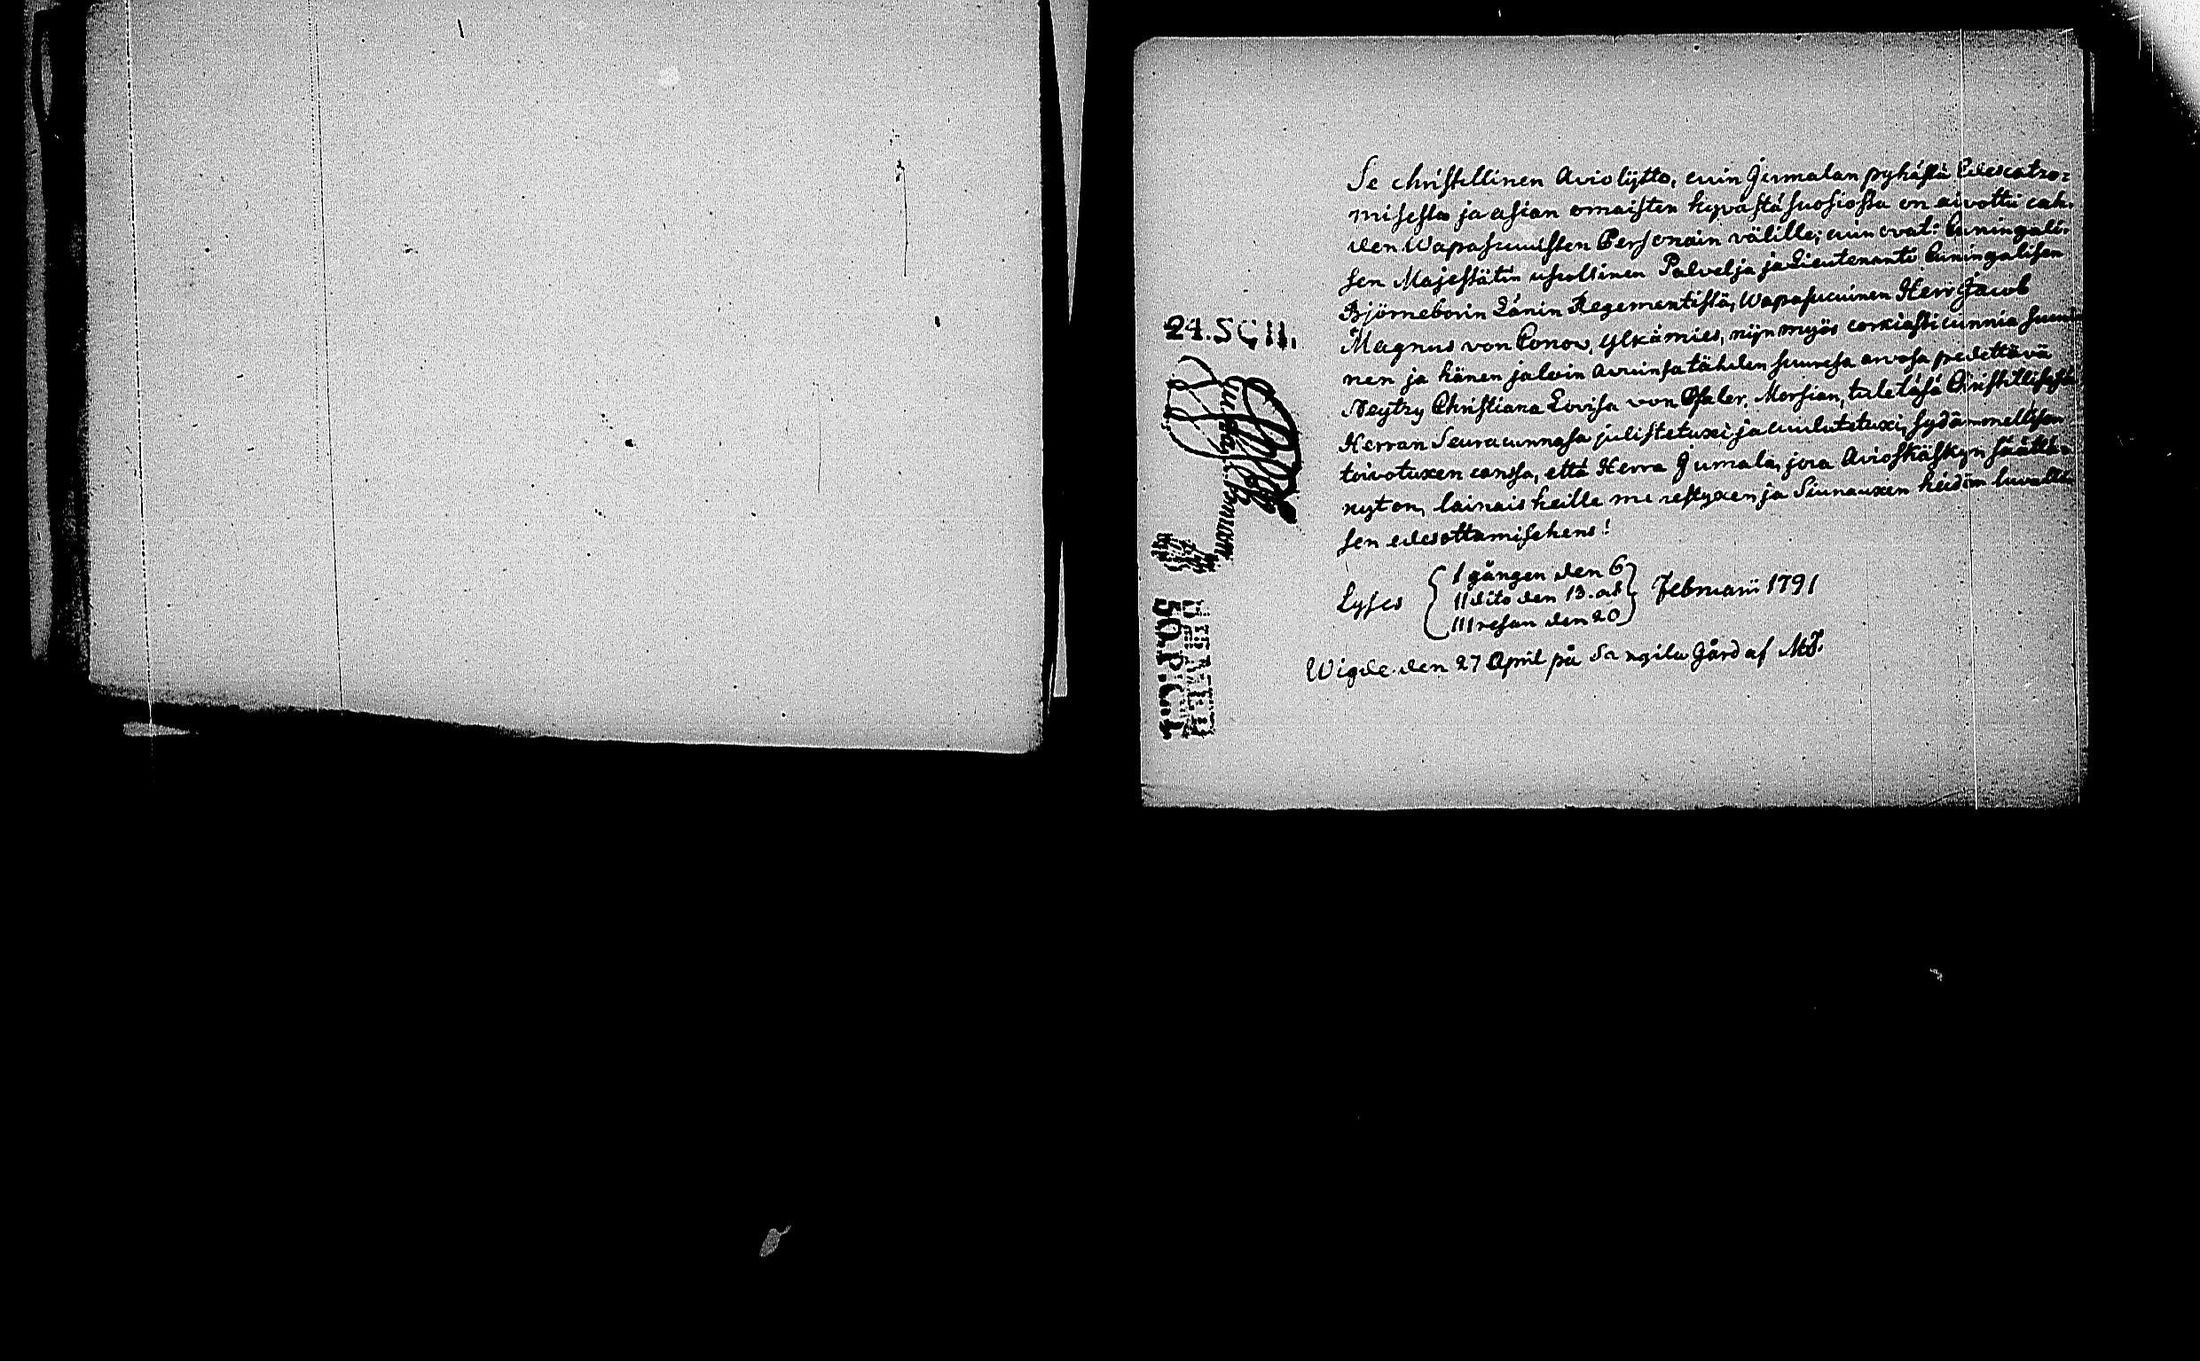 Se christillinen Avio lijtto, cuin Jumalan pyhästä Edescatzo=
misesta ja asian omaisten hyvästä suosiosta on aivottu cah=
den Wapasucuisten Personain välille, cuin ovat: Cuningali=
sen Majestätin uscollinen Palvelja ja Lieutenanti Cuningalisen
Björneborin Länin Regementistä, Wapasucuinen Herr Jacob
Magnus von Conow, Ylkämies, nijn myös corkiasti cunnia
nen ja hänen jaloin Avuinsa tähden suuresa arvosa pidettävä
Neytzy Christiana Lovisa von Pfaler, Morsian, tule täsä Christillisesä
Herran Seuracunnasa julistetuxi ja cuulutetuxi, sydämmellisen
toivotuxen cansa, että Herra Jumala, joca Avioskäskyn säättä=
nyt on, lainais heille menestyxen ja Siunauxen heidän luvalli=
sen edesottamisehens!
Lyses
I gången den 6
II dito den 13. och
III resan den 20
Februarii 1791
Wigde den 27 April på Sangilu Gård af
24.SCH.